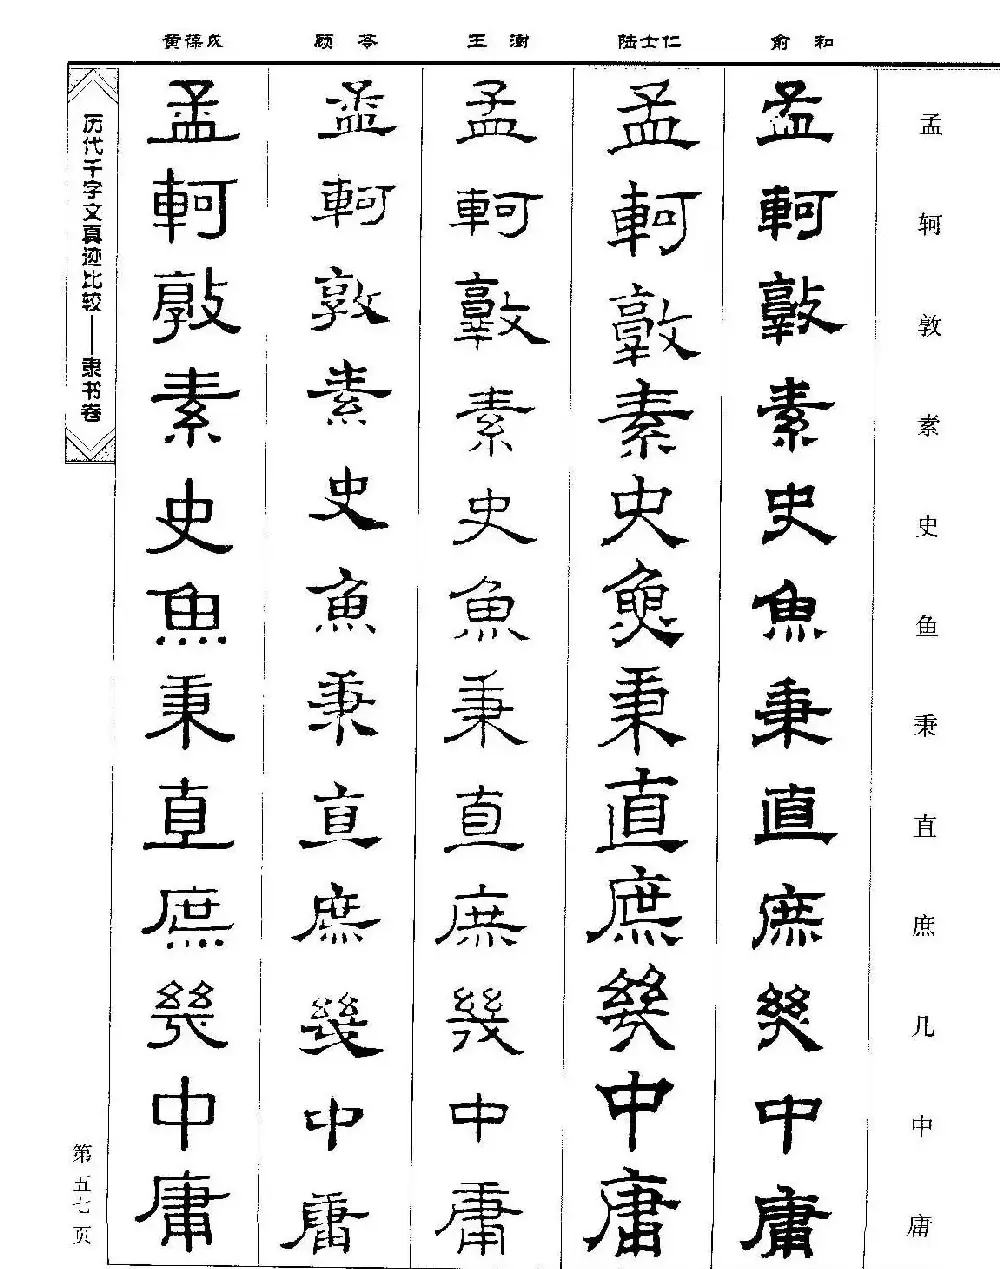 俞和
陆士仁
王澍
顾苓
黄葆戉
孟轲敦素史鱼秉直庶几中庸
孟軻敦素史魚秉直庶幾中庸
孟軻敦素史魚秉直庶幾中庸
孟軻敦素史魚秉直庶幾中庸
孟軻敦素史魚秉直庶幾中庸
孟軻敦素史魚秉直庶幾中庸
历代千字文真迹比较——隶书卷
第五七页